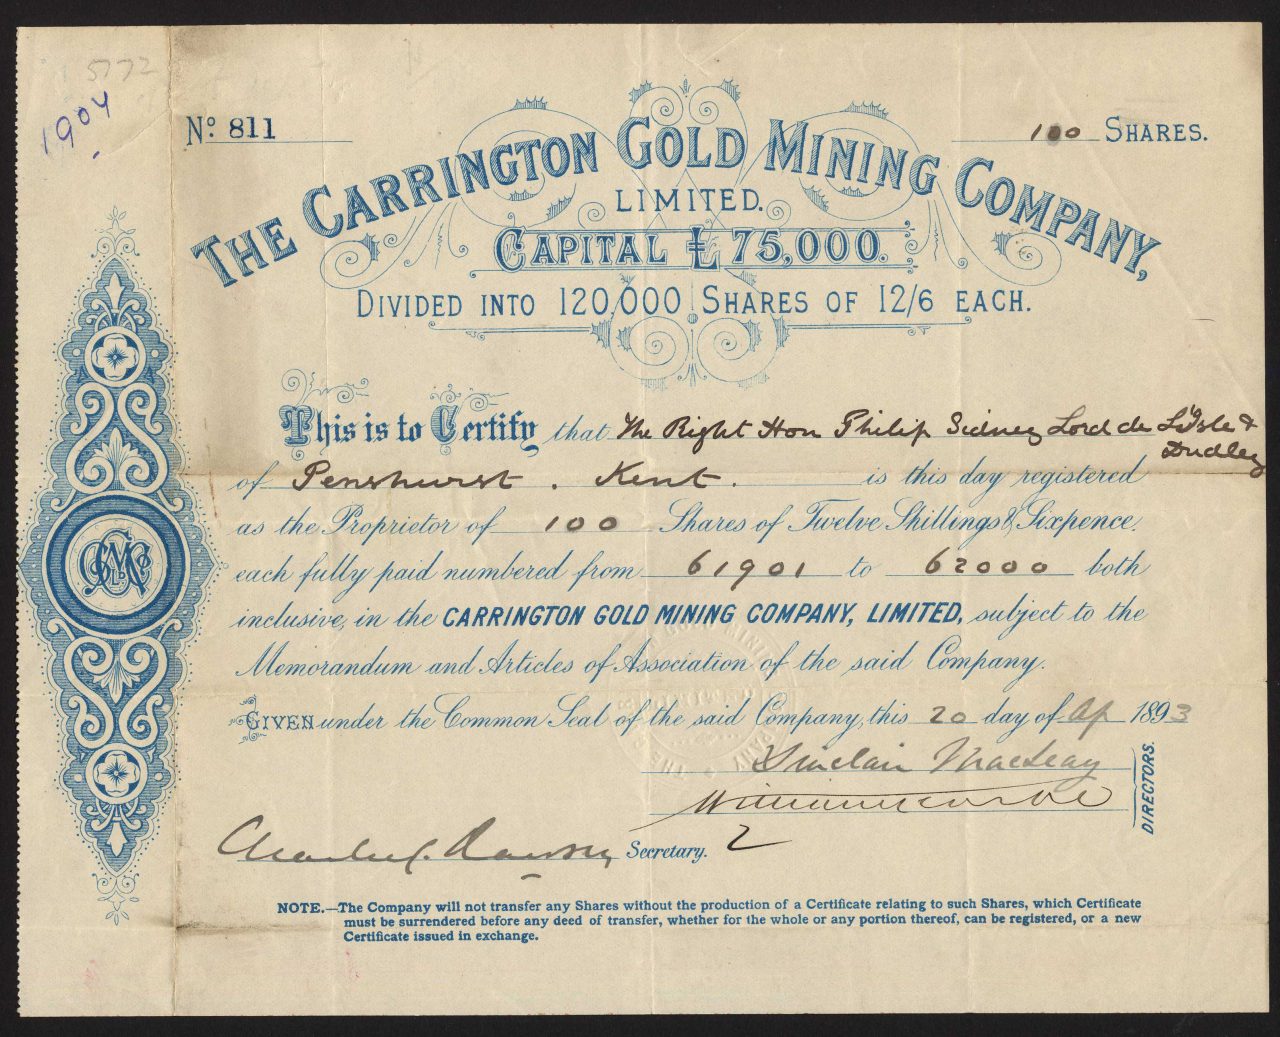 5772
1904
No. 811
100 SHARES.
THE CARRINGTON GOLD MINING COMPANY,
LIMITED.
CAPITAL £75,000.
DIVIDED INTO 120,000 SHARES OF 12/6 EACH.
This is to Certify that The Right Hon Philip Sidney Lord de L'Isle &
Dudley
of Penshurst . Kent. is this day registered
as the Proprietor of 100 Shares of Twelve Shillings & Sixpence,
each fully paid numbered from 61901 to 62000 both
inclusive, in the CARRINGTON GOLD MINING COMPANY, LIMITED, subject to the
Memorandum and Articles of Association of the said Company.
GIVEN under the Common Seal of the said Company, this 20 day of Ap 1893
Sinclair Macleay
DIRECTORS.
Secretary.
2
NOTE.—The Company will not transfer any Shares without the production of a Certificate relating to such Shares, which Certificate
must be surrendered before any deed of transfer, whether for the whole or any portion thereof, can be registered, or a new
Certificate issued in exchange.